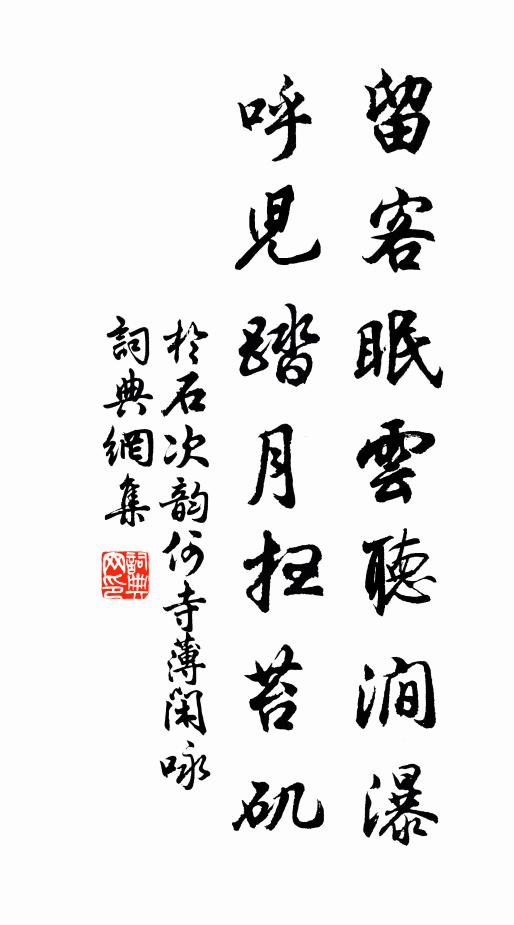 留客眠雲聽澗瀑
呼兒踏月扫苔矶
於石次韵何寺薄閑咏
詞典網集
詞典网印